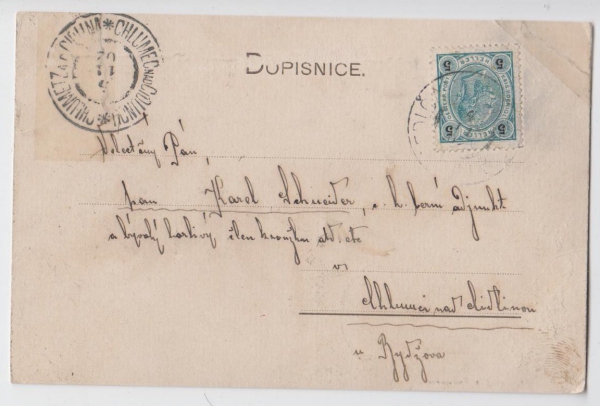 CHLUMETZ A.D. CIDLINA * CHLUMEC NAD CIDLINOU *
DOPISNICE.
5 5
5 5
Velectěný Pán,
pan Karel Schneider, c. k. berní adjunkt
a bývalý horlivý člen kroužku atd. etc
v
Chlumci nad Cidlinou
u Bydžova